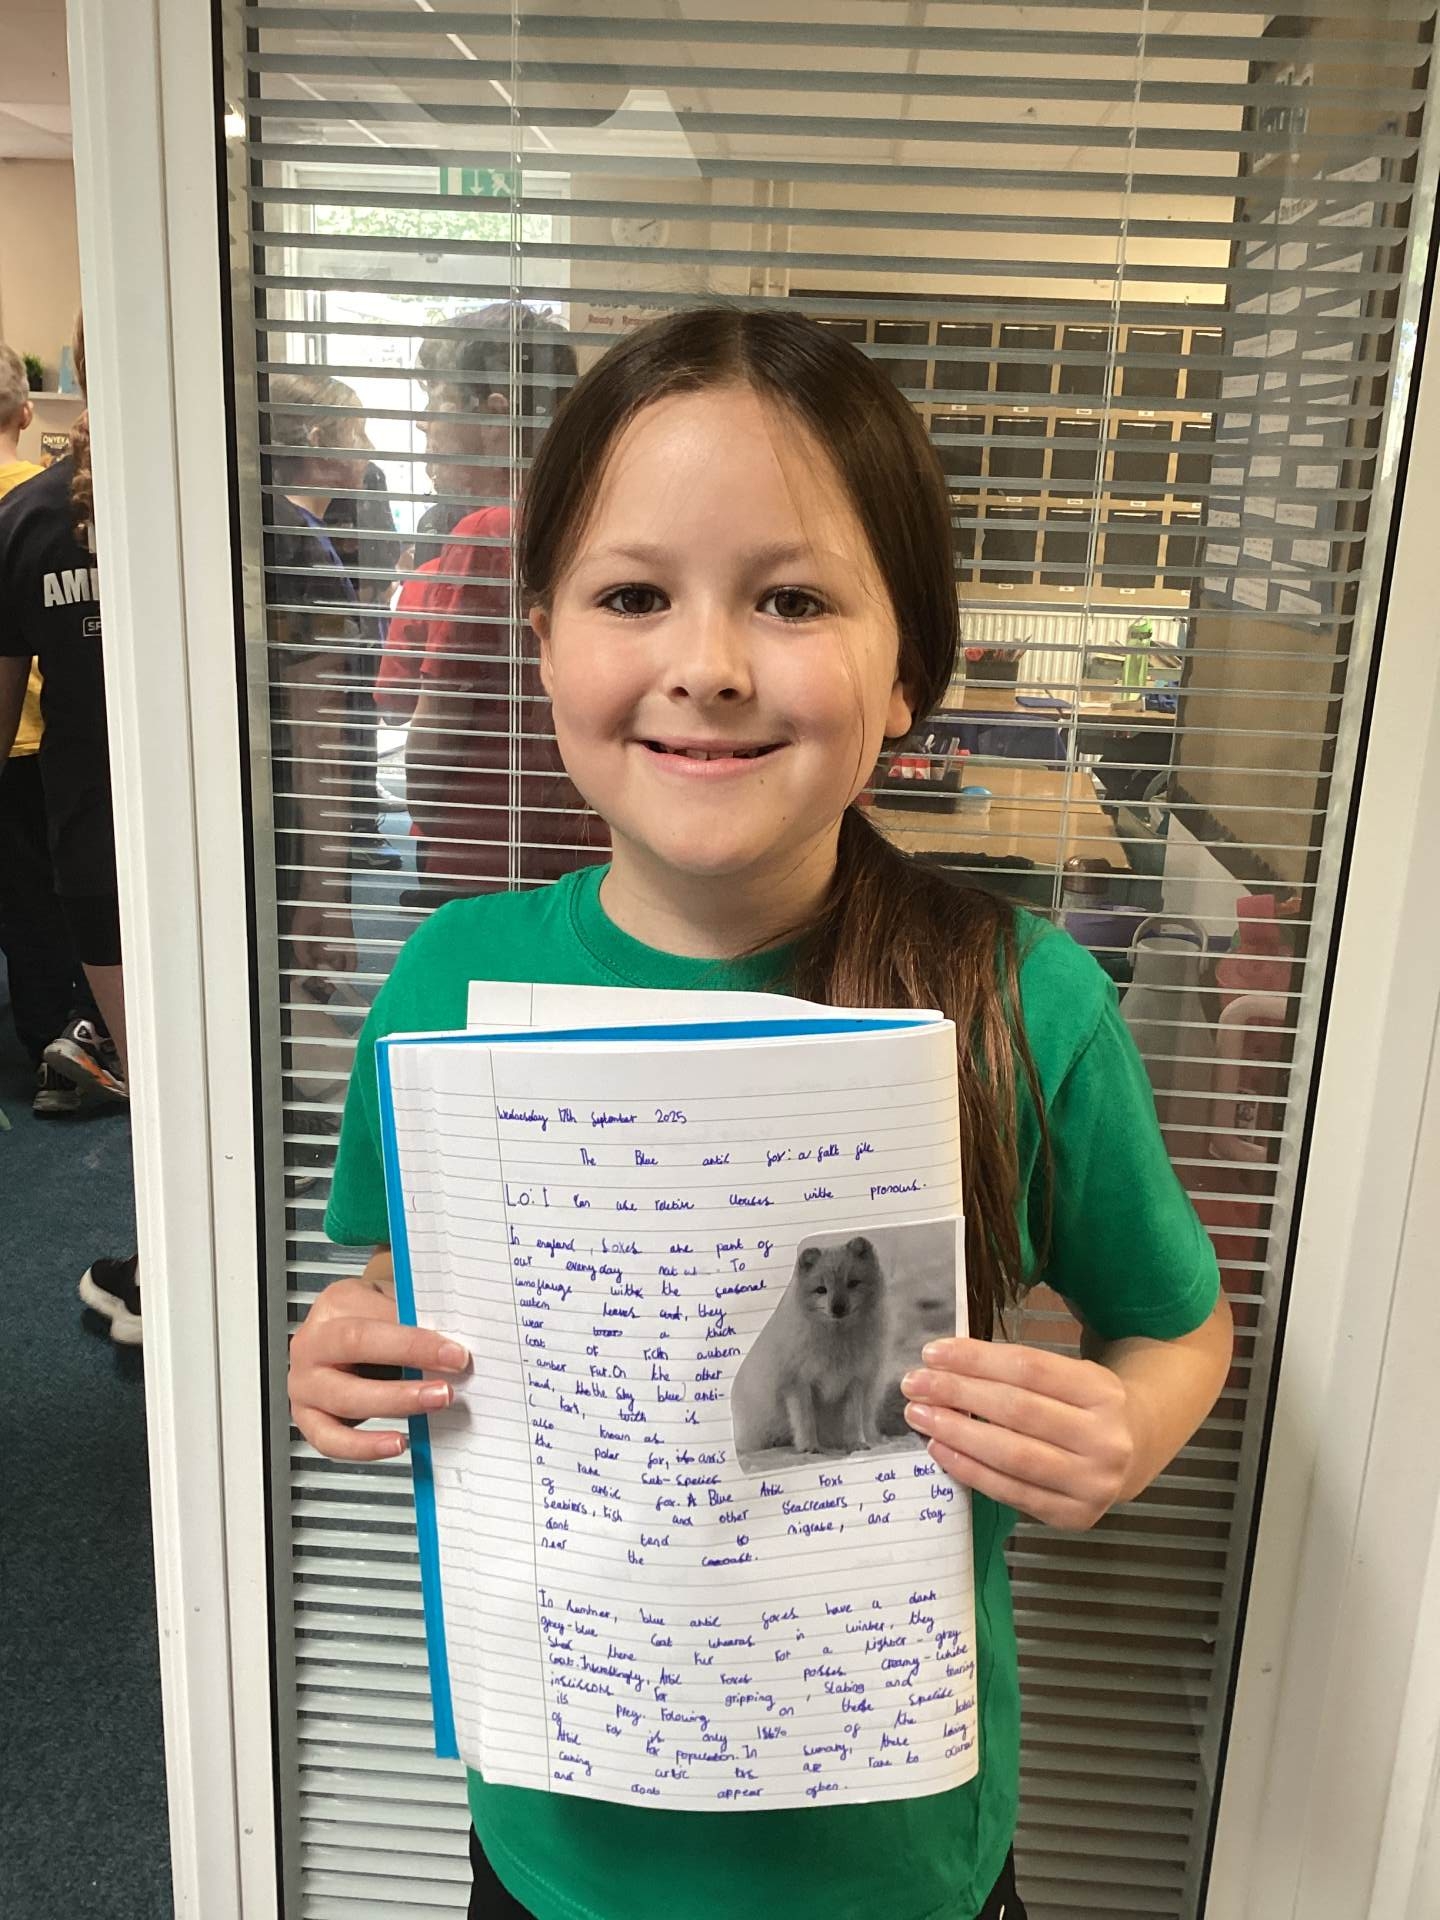 AM
Ready
ONYEKA
Wednesday 17th September 2025
The Blue artic fox: a fact file
Lo: I can use relative clauses withe pronouns.
In england, foxes are part of
our everyday To
camoflauge withe the seasonal
autem leaves and, they
wear a thick
coat of rich aubern
- amber fur. On the other
hand, the sky blue arti-
c fox, is
also known as
the polar fox,
a rare sub-species
of artic fox. A Blue Artic Foxs eat
seabirds, fish and other seacreaters, so they
dont tend to migrate, and stay
near the coast.
In summer, blue artic foxes have a dark
grey-blue coat wheras in winter, they
shed there fur for a lighter-grey
coat. Interestingly, Artic Foxes posses creamy-white
inscissors for gripping, stabing and tearing
its prey. Folowing on these
of fox is only of the total
Artic fox population. In sumary, these loving,
caring artic foxs are rare to
and dont appear often.